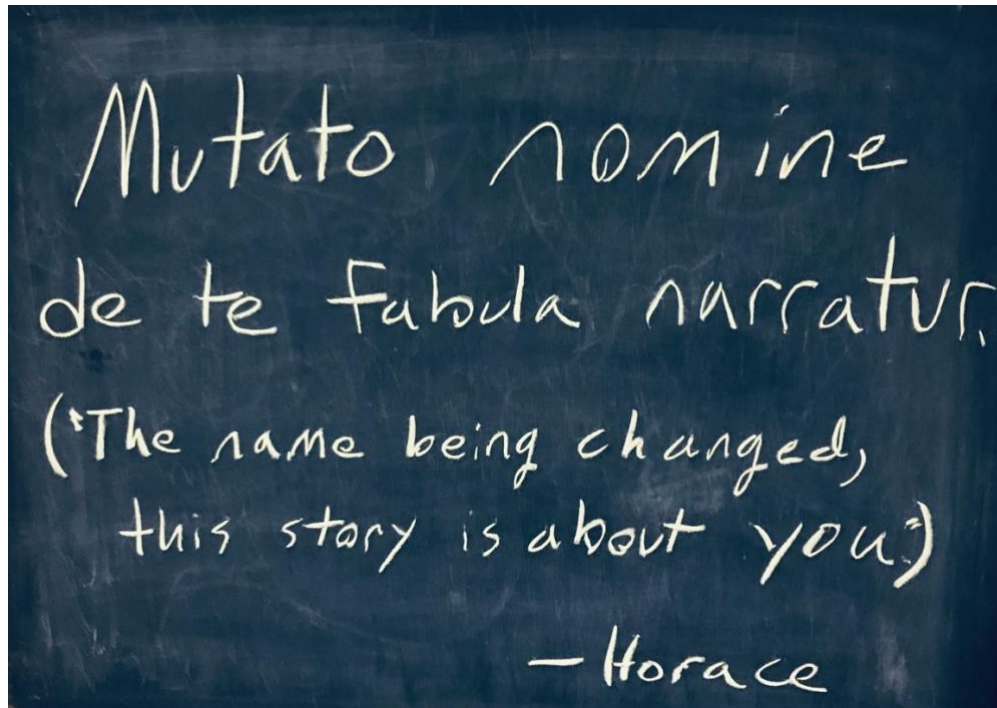 Mutato nomine
de te fabula narratur.
("The name being changed,
this story is about you")
—Horace